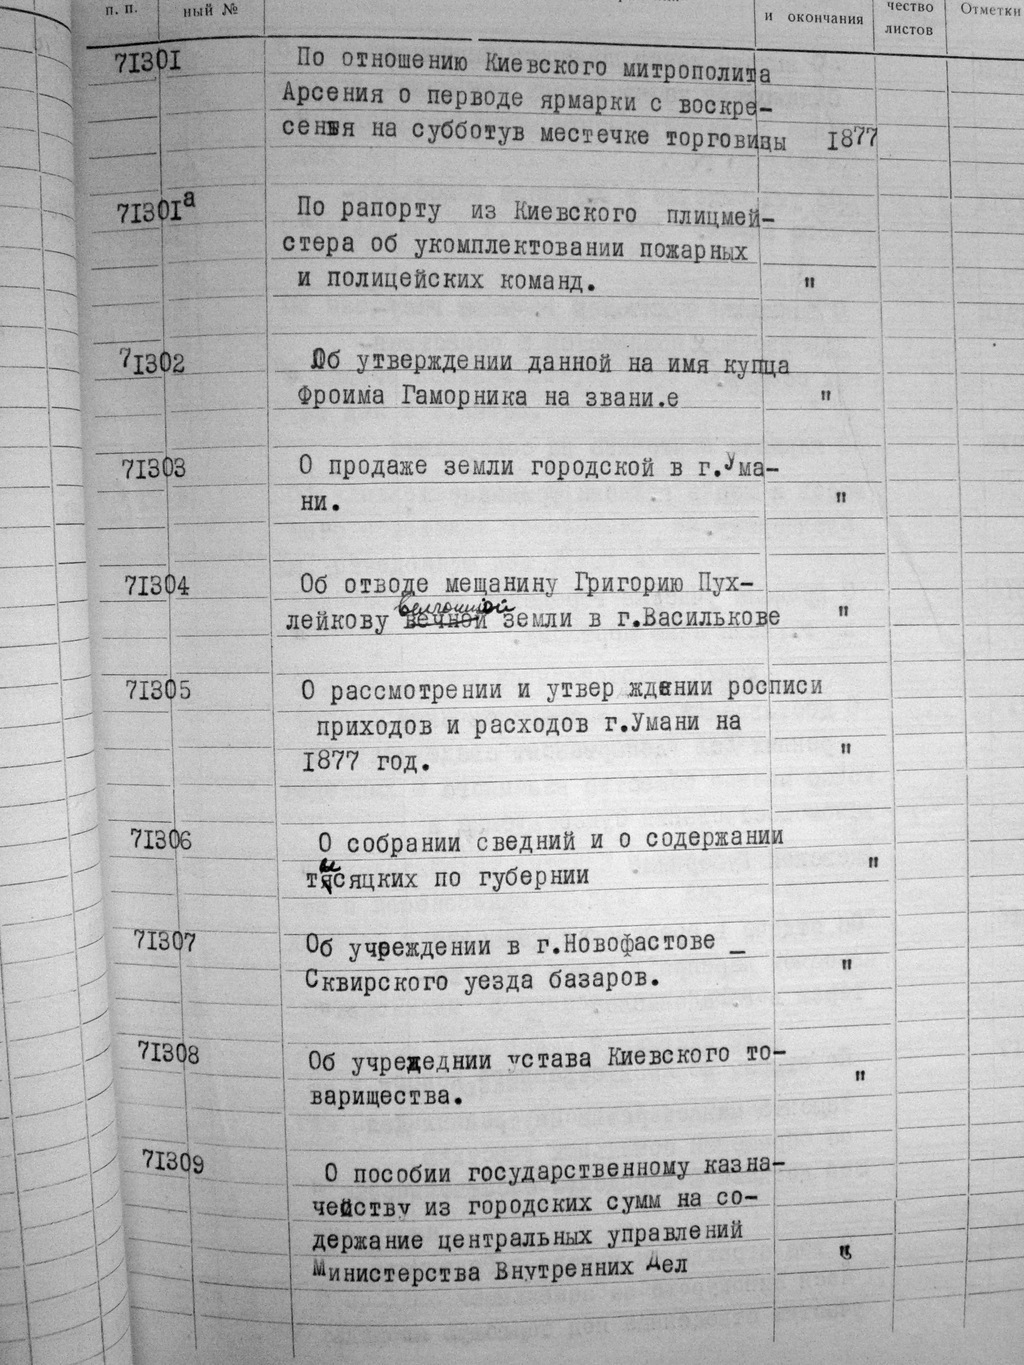 п. п.
ный №
и окончания
чество
листов
Отметки
71301
По отношению Киевского митрополита
Арсения о перводе ярмарки с воскре-
сенья на субботув местечке торговицы 1877
71301а
По рапорту из Киевского плицмей-
стера об укомплектовании пожарных
и полицейских команд. "
71302
Об утверждении данной на имя купца
Фроима Гаморника на звани.е "
71303
О продаже земли городской в г.Ума-
ни. "
71304
Об отводе мещанину Григорию Пух-
лейкову вечной земли в г.Василькове "
71305
О рассмотрении и утвер ждении росписи
приходов и расходов г.Умани на
1877 год. "
71306
О собрании сведний и о содержании
тысяцких по губернии "
71307
Об учреждении в г.Новофастове _
Сквирского уезда базаров. "
71308
Об учреждеднии устава Киевского то-
варищества. "
71309
О пособии государственному казна-
чейству из городских сумм на со-
держание центральных управлений
Министерства Внутренних Дел "